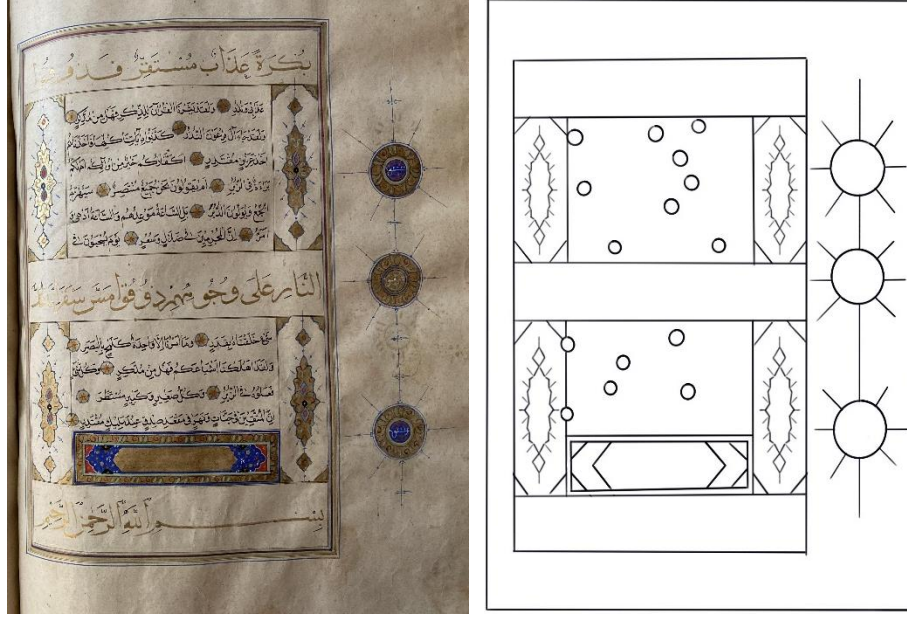 بُكْرَةً عَذَابٌ مُسْتَقِرٌّ فَذُوقُوا
عَذَابِي وَنُذُرِ وَلَقَدْ يَسَّرْنَا الْقُرْآنَ لِلذِّكْرِ فَهَلْ مِنْ مُدَّكِرٍ
وَلَقَدْ جَاءَ آلَ فِرْعَوْنَ النُّذُرُ كَذَّبُوا بِآيَاتِنَا كُلِّهَا فَأَخَذْنَاهُمْ
أَخْذَ عَزِيزٍ مُقْتَدِرٍ أَكُفَّارُكُمْ خَيْرٌ مِنْ أُولَئِكُمْ أَمْ لَكُمْ
بَرَاءَةٌ فِي الزُّبُرِ أَمْ يَقُولُونَ نَحْنُ جَمِيعٌ مُنْتَصِرٌ سَيُهْزَمُ
الْجَمْعُ وَيُوَلُّونَ الدُّبُرَ بَلِ السَّاعَةُ مَوْعِدُهُمْ وَالسَّاعَةُ أَدْهَى وَ
أَمَرُّ إِنَّ الْمُجْرِمِينَ فِي ضَلَالٍ وَسُعُرٍ يَوْمَ يُسْحَبُونَ فِي
النَّارِ عَلَى وُجُوهِهِمْ ذُوقُوا مَسَّ سَقَرَ
شَيْءٍ خَلَقْنَاهُ بِقَدَرٍ وَمَا أَمْرُنَا إِلَّا وَاحِدَةٌ كَلَمْحٍ بِالْبَصَرِ
وَلَقَدْ أَهْلَكْنَا أَشْيَاعَكُمْ فَهَلْ مِنْ مُدَّكِرٍ وَكُلُّ شَيْءٍ
فَعَلُوهُ فِي الزُّبُرِ وَكُلُّ صَغِيرٍ وَكَبِيرٍ مُسْتَطَرٌ
إِنَّ الْمُتَّقِينَ فِي جَنَّاتٍ وَنَهَرٍ فِي مَقْعَدِ صِدْقٍ عِنْدَ مَلِيكٍ مُقْتَدِرٍ
بِسْمِ اللَّهِ الرَّحْمَنِ الرَّحِيمِ